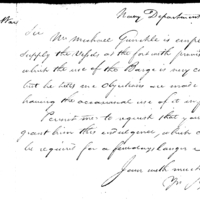 Navy Department
Sir Mr. Michael Gunckle is emplo
supply the Vessels at the fort with provis
which the use of the Barge is very con
but he tells me objections are made
having the occasional use of it
Permit me to request that you
grant him this indulgence, which
be required for a few days longer
I am with much